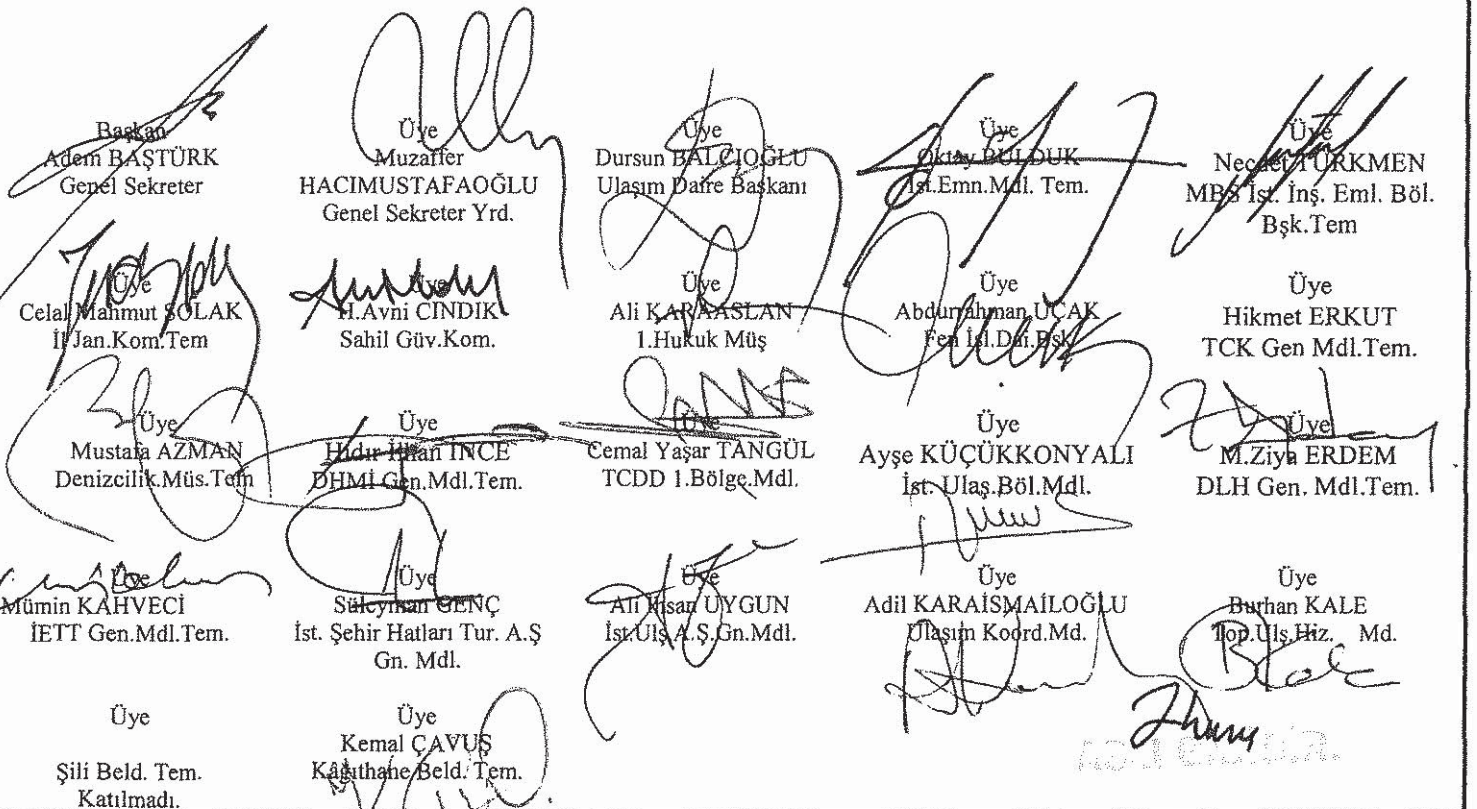 Başkan
Adem BAŞTÜRK
Genel Sekreter
Üye
Muzaffer
HACIMUSTAFAOĞLU
Genel Sekreter Yrd.
Üye
Dursun BALCIOĞLU
Ulaşım Daire Başkanı
Üye
Oktay BULDUK
İst.Emn.Mdl. Tem.
Üye
Necdet TÜRKMEN
MBS İst. İnş. Eml. Böl.
Bşk.Tem
Üye
Celal Mahmut SOLAK
İl Jan.Kom.Tem
Üye
H.Avni CINDIK
Sahil Güv.Kom.
Üye
Ali KARAASLAN
1.Hukuk Müş
Üye
Abdurrahman UÇAK
Fen İşl.Dai.Bşk
Üye
Hikmet ERKUT
TCK Gen Mdl.Tem.
Üye
Mustafa AZMAN
Denizcilik.Müs.Tem
Üye
Hıdır İlhan İNCE
DHMİ Gen.Mdl.Tem.
Üye
Cemal Yaşar TANGÜL
TCDD 1.Bölge.Mdl.
Üye
Ayşe KÜÇÜKKONYALI
İst. Ulaş.Böl.Mdl.
Üye
M.Ziya ERDEM
DLH Gen. Mdl.Tem.
Üye
Mümin KAHVECİ
İETT Gen.Mdl.Tem.
Üye
Süleyman GENÇ
İst. Şehir Hatları Tur. A.Ş
Gn. Mdl.
Üye
Ali İhsan UYGUN
İst.Ulş.A.Ş.Gn.Mdl.
Üye
Adil KARAİSMAİLOĞLU
Ulaşım Koord.Md.
Üye
Burhan KALE
Top.Ulş.Hiz. Md.
Üye
Şili Beld. Tem.
Katılmadı.
Üye
Kemal ÇAVUŞ
Kâğıthane Beld. Tem.